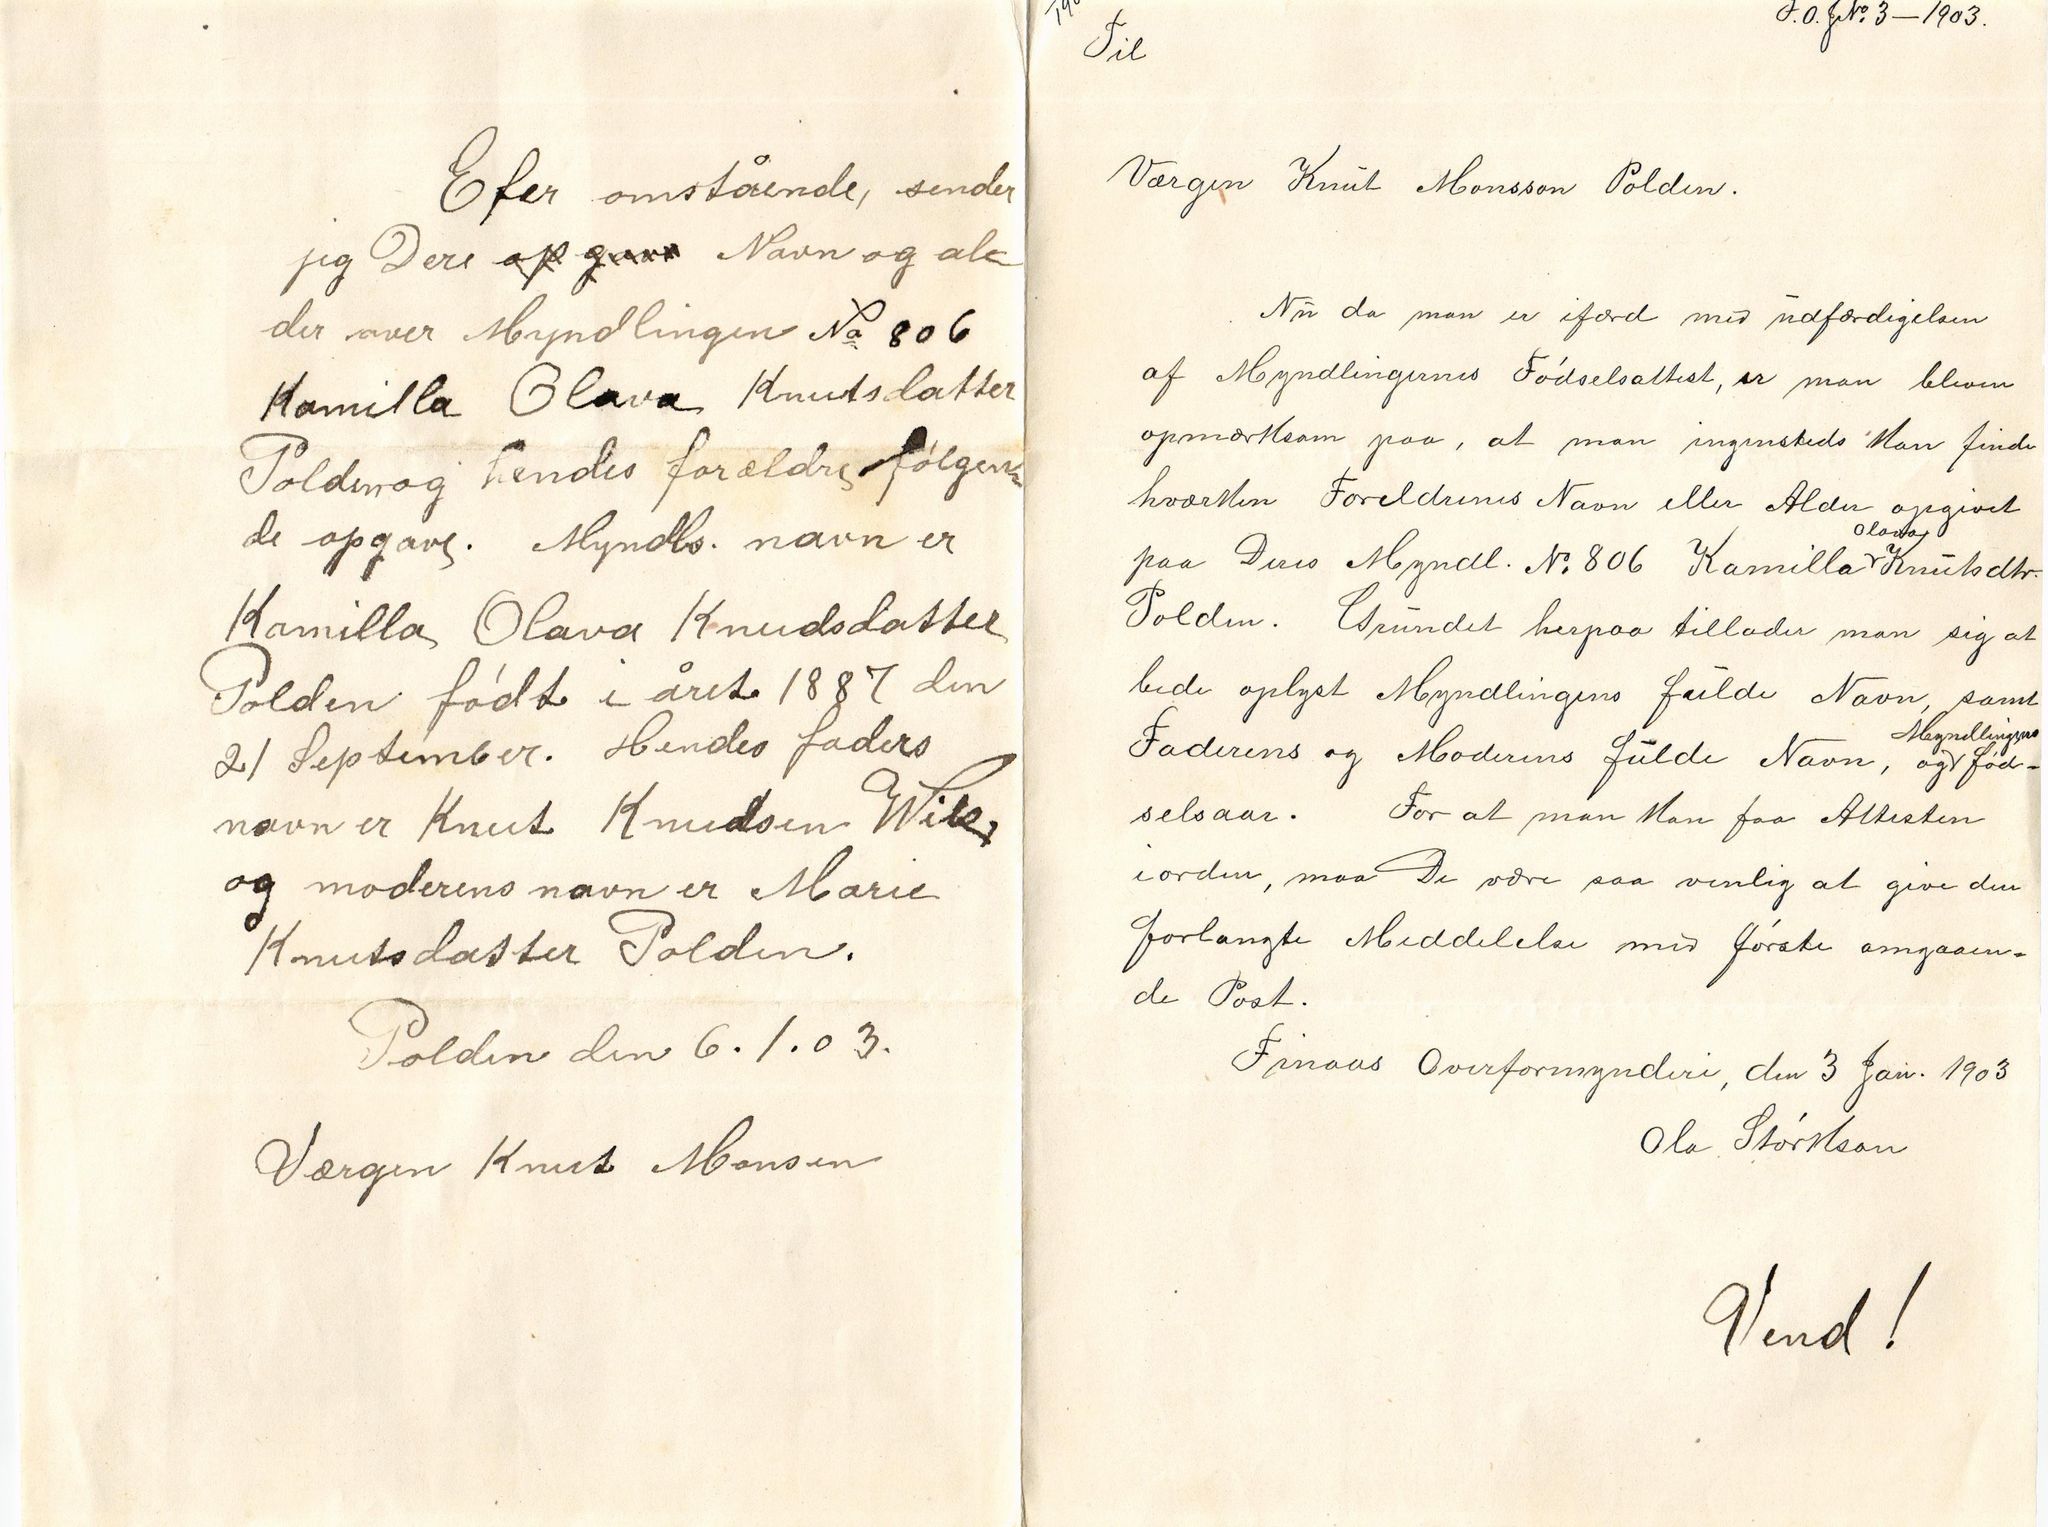 Efer omstående, sender
jeg Dere opgave Navn og al-
der over Myndlingen No 806
Kamilla Olava Knutsdatter
Polden og hendes forældre følgen-
de opgave. Myndls. navn er
Kamilla Olava Knudsdatter
Polden født i året 1887 den
21 September. Hendes faders
navn er Knut Knudsen Wik
og moderens navn er Marie
Knutsdatter Polden.
Polden den 6.1.03.
Værgen Knut Monsen
F.O.J No. 3 — 1903.
Til
Værgen Knut Monsson Polden.
Nu da man er ifærd med udfærdigelsen
af Myndlingernes Fødselsattest, er man bleven
opmærksom paa, at man ingensteds kan finde
hværken Foreldrenes Navn eller Alder opgivet
paa Deres Myndl. No. 806 Kamilla Olava Knutsdtr.
Polden. Grundet herpaa tillader man sig at
bede oplyst Myndlingens fulde Navn, samt
Faderens og Moderens fulde Navn, og Myndlingens Fød-
selsaar. For at man kan faa Attesten
iorden, maa De være saa venlig at give den
forlangte Meddelelse med første omgaaen-
de Post.
Finaas Overformynderi, den 3 Jan. 1903
Ola Størkson
Vend!